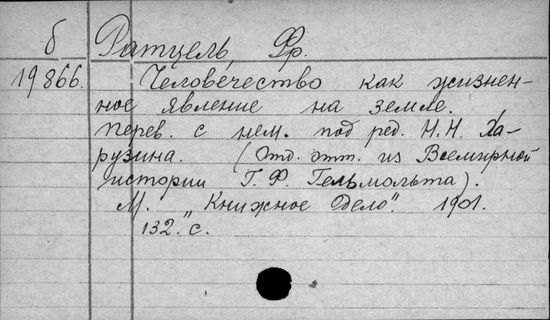 б Ратцель, Фр.
19866. Человечество как жизнен-
ное явление на земле.
Перев. с нем. под ред. Н.Н. Ха-
рузина. (Отд. отт. из Всемирной
истории Г. Ф. Гельмольта).
М. „Книжное Дело". 1901.
132. с.